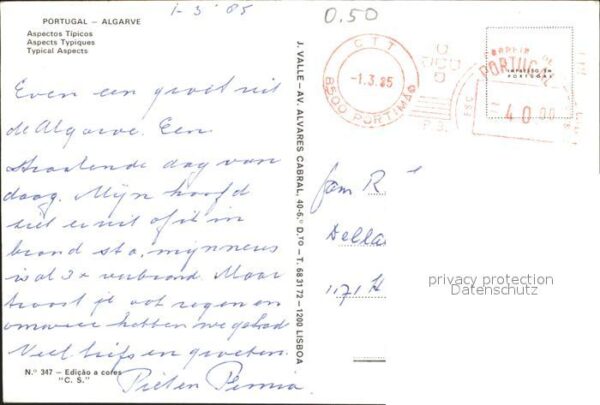 1-3-85
0.50
PORTUGAL - ALGARVE
Aspectos Típicos
Aspects Typiques
Typical Aspects
Even een groet uit
de Algarve. Een
stralende dag van
daag. Mijn hoofd
ziet eruit of it in
brand sta, mijn neus
is al 3x verbrand. Maar
troost je ook regen en
onweer hebben we gehad
Veel liefs en groeten.
Piet en
N.º 347 - Edição a cores
"C. S."
J. VALLE - AV. ALVARES CABRAL, 40-6.º D.TO - T. 68 31 72 - 1200 LISBOA
CTT
-1.3.85
8500 PORTIMÃO
P.3.
PORTUGAL
IMPRESSO EM
PORTUGAL
ESC.
40 00
fam R
Della
1171 H
privacy protection
Datenschutz